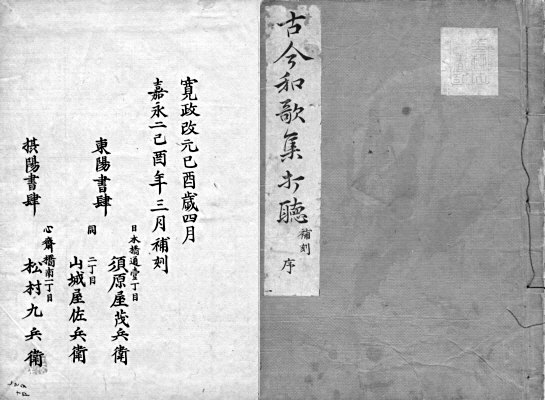 古今和歌集打聽
補刻
序
寛政改元己酉歳四月
嘉永二己酉年三月補刻
東陽書肆
日本橋通壹丁目
須原屋茂兵衛
同 二丁目
山城屋佐兵衛
摂陽書肆
心齋橋南一丁目
松村九兵衛